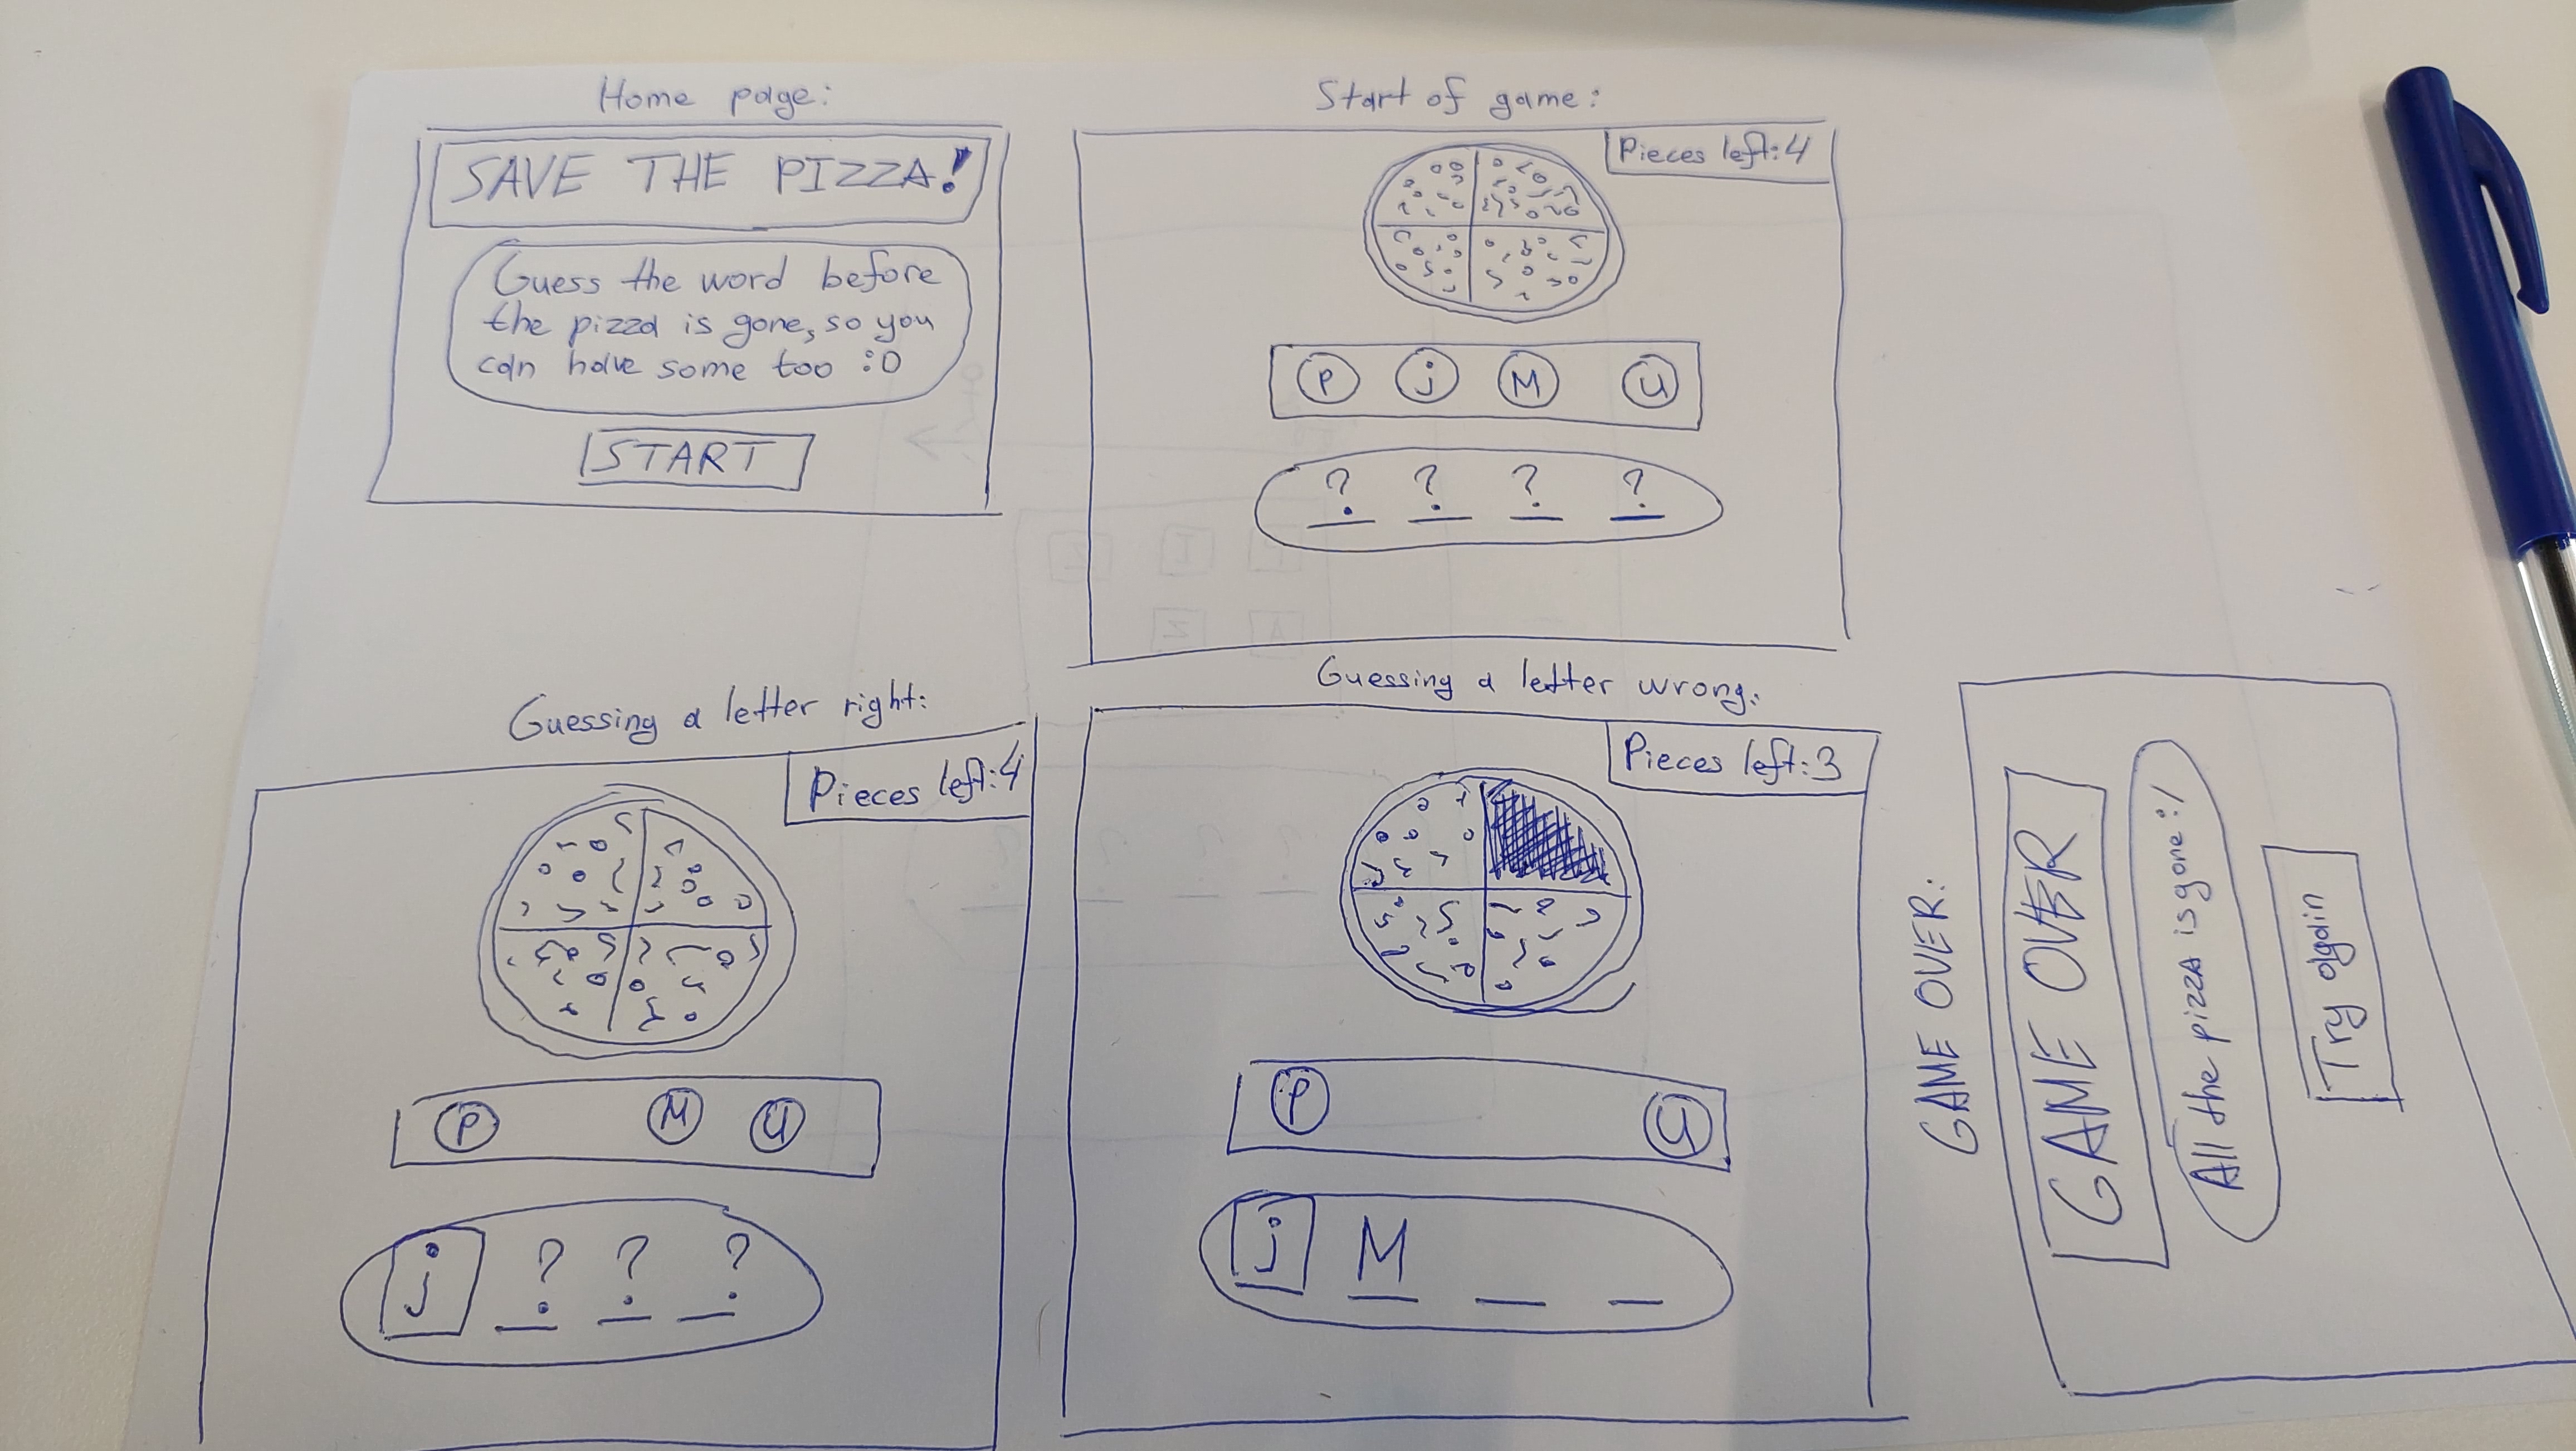 Home page:
SAVE THE PIZZA!
Guess the word before
the pizza is gone, so you
can have some too :D
START
Start of game:
Pieces left: 4
P j M U
? ? ? ?
Guessing a letter right:
Pieces left: 4
P M U
j ? ? ?
Guessing a letter wrong:
Pieces left: 3
P U
j M _ _
GAME OVER:
GAME OVER
All the pizzA is gone :/
Try again